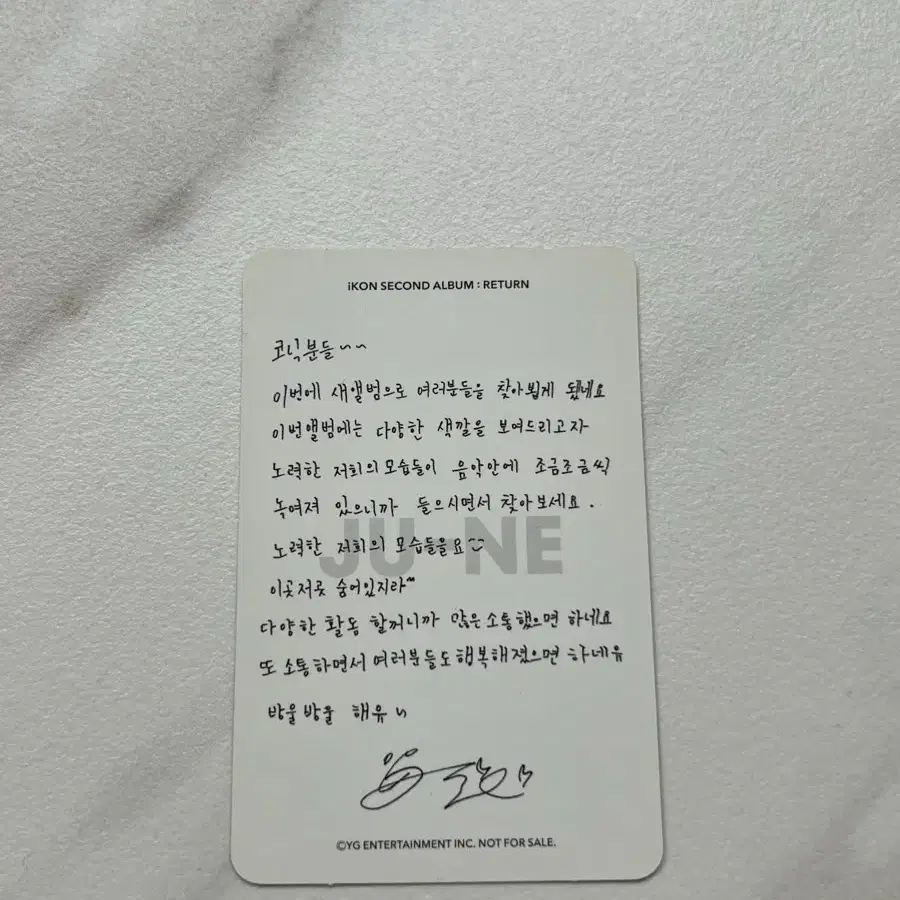 iKON SECOND ALBUM : RETURN
코닉분들~~
이번에 새앨범으로 여러분들을 찾아뵙게 됐네요
이번앨범에는 다양한 색깔을 보여드리고자
노력한 저희의 모습들이 음악안에 조금조금씩
녹여져 있으니까 들으시면서 찾아보세요.
JU-NE
노력한 저희의 모습들을요
이곳저곳 숨어있지라
다양한 활동 할꺼니까 많은소통했으면 하네요
또 소통하면서 여러분들도행복해졌으면 하네유
방울방울 해유
©YG ENTERTAINMENT INC. NOT FOR SALE.